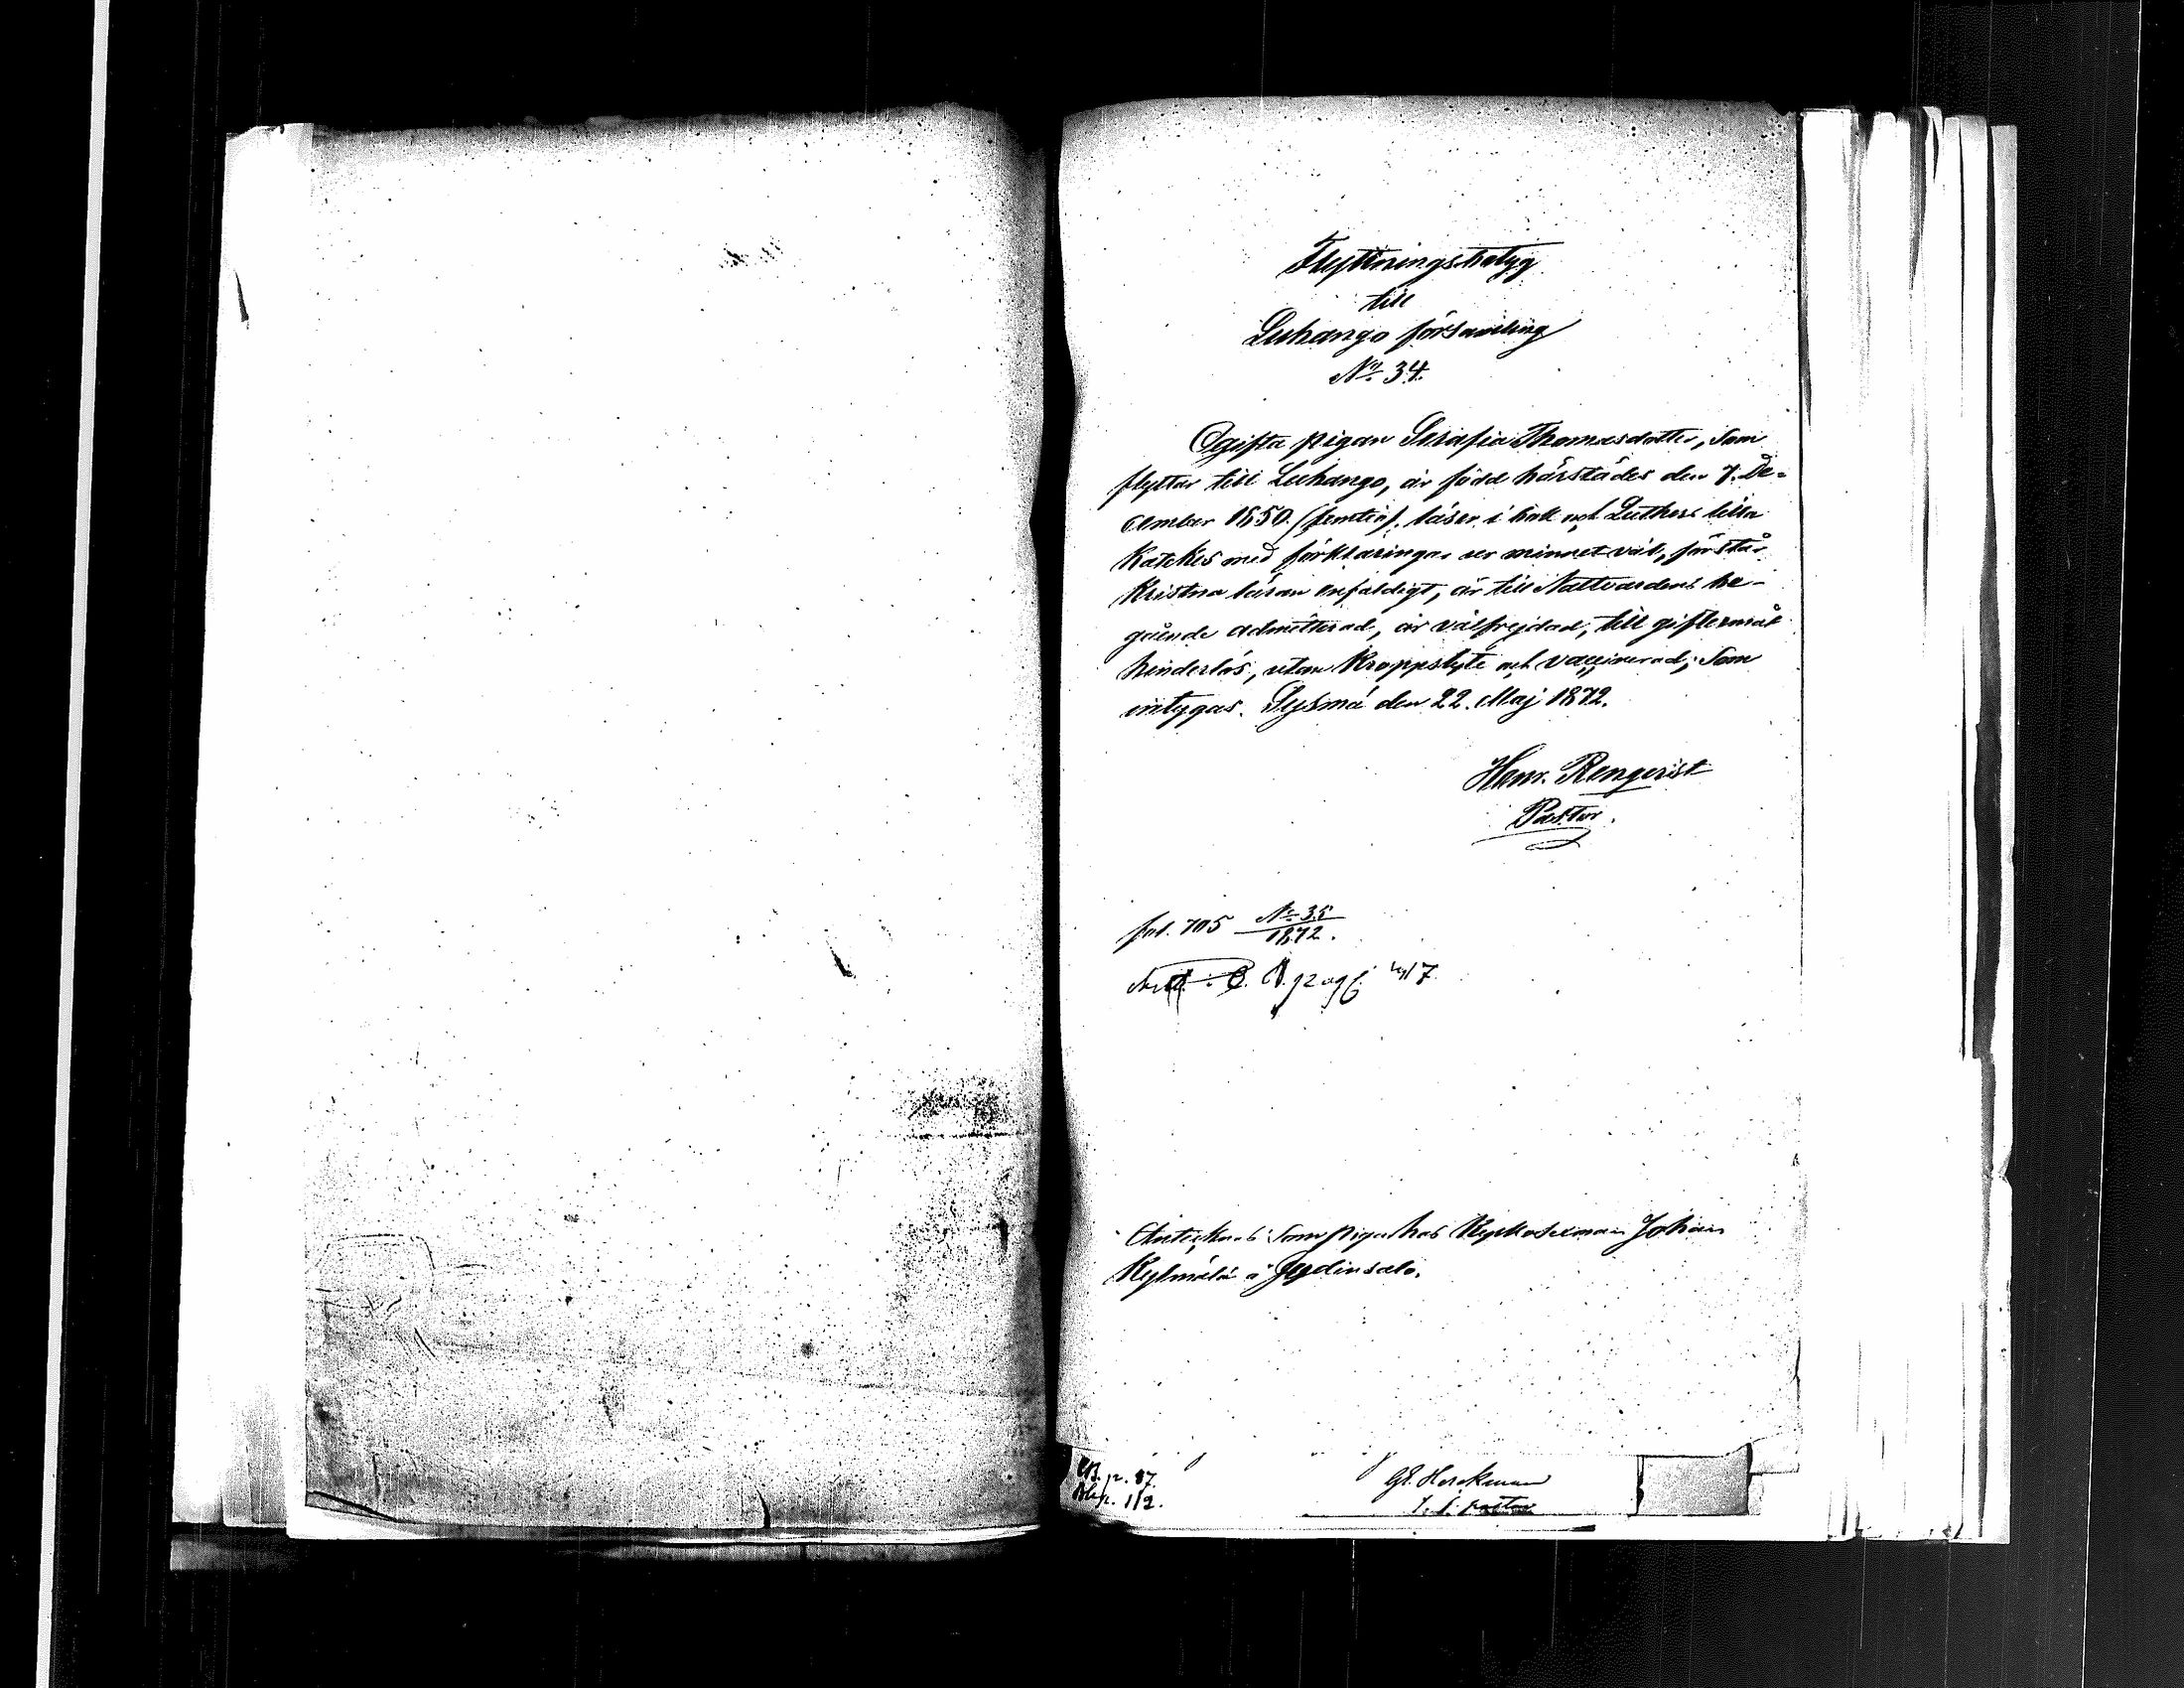 Flyttningsbetyg
till
Luhango församling
No 34.
Ogifta pigan Serafia Thomasdotter, som
flyttar till Luhango, är född härstädes den 7. De-
cember 1850. (femtio). läser i bok och Luthers lilla
Katekes med förklaringar ur minnet väl, förstår
Kristna läran enfaldigt, är till Nattvardens be-
gående admitterad, är välfrejdad, till giftermål
hinderlös, utan Kroppslyte och vaccinerad; som
intygas. Sysmä den 22. Maj 1872.
Henr. Renqvist
Pastor.
fol. 705 No 35
1872.
Antecknas som piga hos Johan
Kylmälä å Jydinsalo.
p. 87.
p. 112.